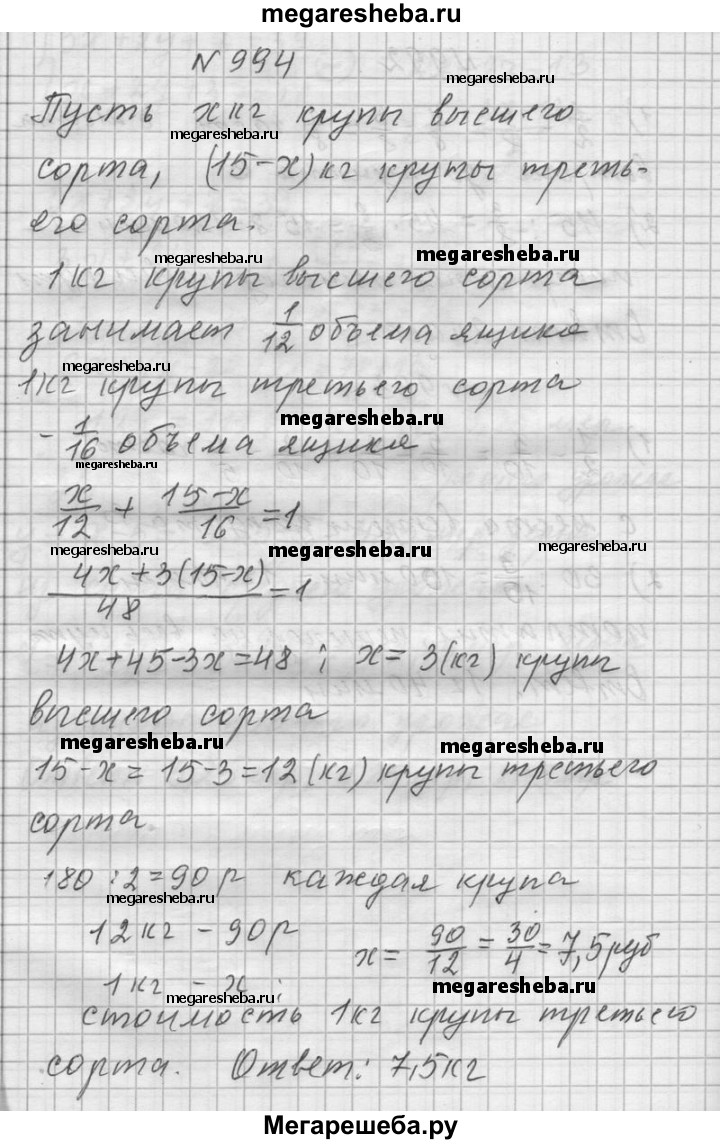 megaresheba.ru
N 994
megaresheba.ru
Пусть x кг крупы высшего
megaresheba.ru
сорта, (15-x) кг крупы треть-
его сорта.
megaresheba.ru megaresheba.ru
1 кг крупы высшего сорта
занимает 1/12 объема ящика
megaresheba.ru
1кг крупы третьего сорта
megaresheba.ru
- 1/16 объема ящика
megaresheba.ru
x/12 + 15-x/16 = 1
megaresheba.ru megaresheba.ru megaresheba.ru
4x+3(15-x)/48 = 1
4x+45-3x=48 ; x= 3(кг) круп
высшего сорта
megaresheba.ru megaresheba.ru
15-x= 15-3=12(кг) крупы третьего
сорта
180:2=90 р каждая крупа
megaresheba.ru
12 кг - 90р
x= 90/12 = 30/4 = 7,5руб
1 кг - x ;
megaresheba.ru megaresheba.ru
стоимость 1кг крупы третьего
сорта. Ответ: 7,5кг
Мегарешеба.ру